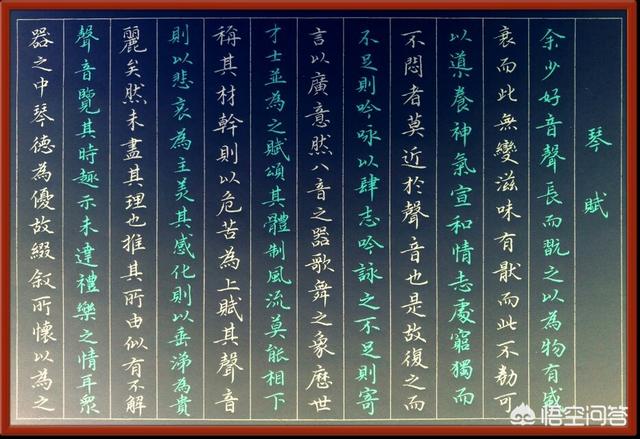 琴賦
余少好音聲長而翫之以為物有盛
衰而此無變滋味有猒而此不勌可
以導養神氣宣和情志處窮獨而
不悶者莫近於聲音也是故復之而
不足則吟咏以肆志吟詠之不足則寄
言以廣意然八音之器歌舞之象歷世
才士並為之賦頌其體制風流莫能相下
稱其材幹則以危苦為上賦其聲音
則以悲哀為主美其感化則以垂涕為貴
麗矣然未盡其理也推其所由似有不解
聲音覽其時趣示未達禮樂之情耳眾
器之中琴德為優故綴叙所懷以為之
悟空问答